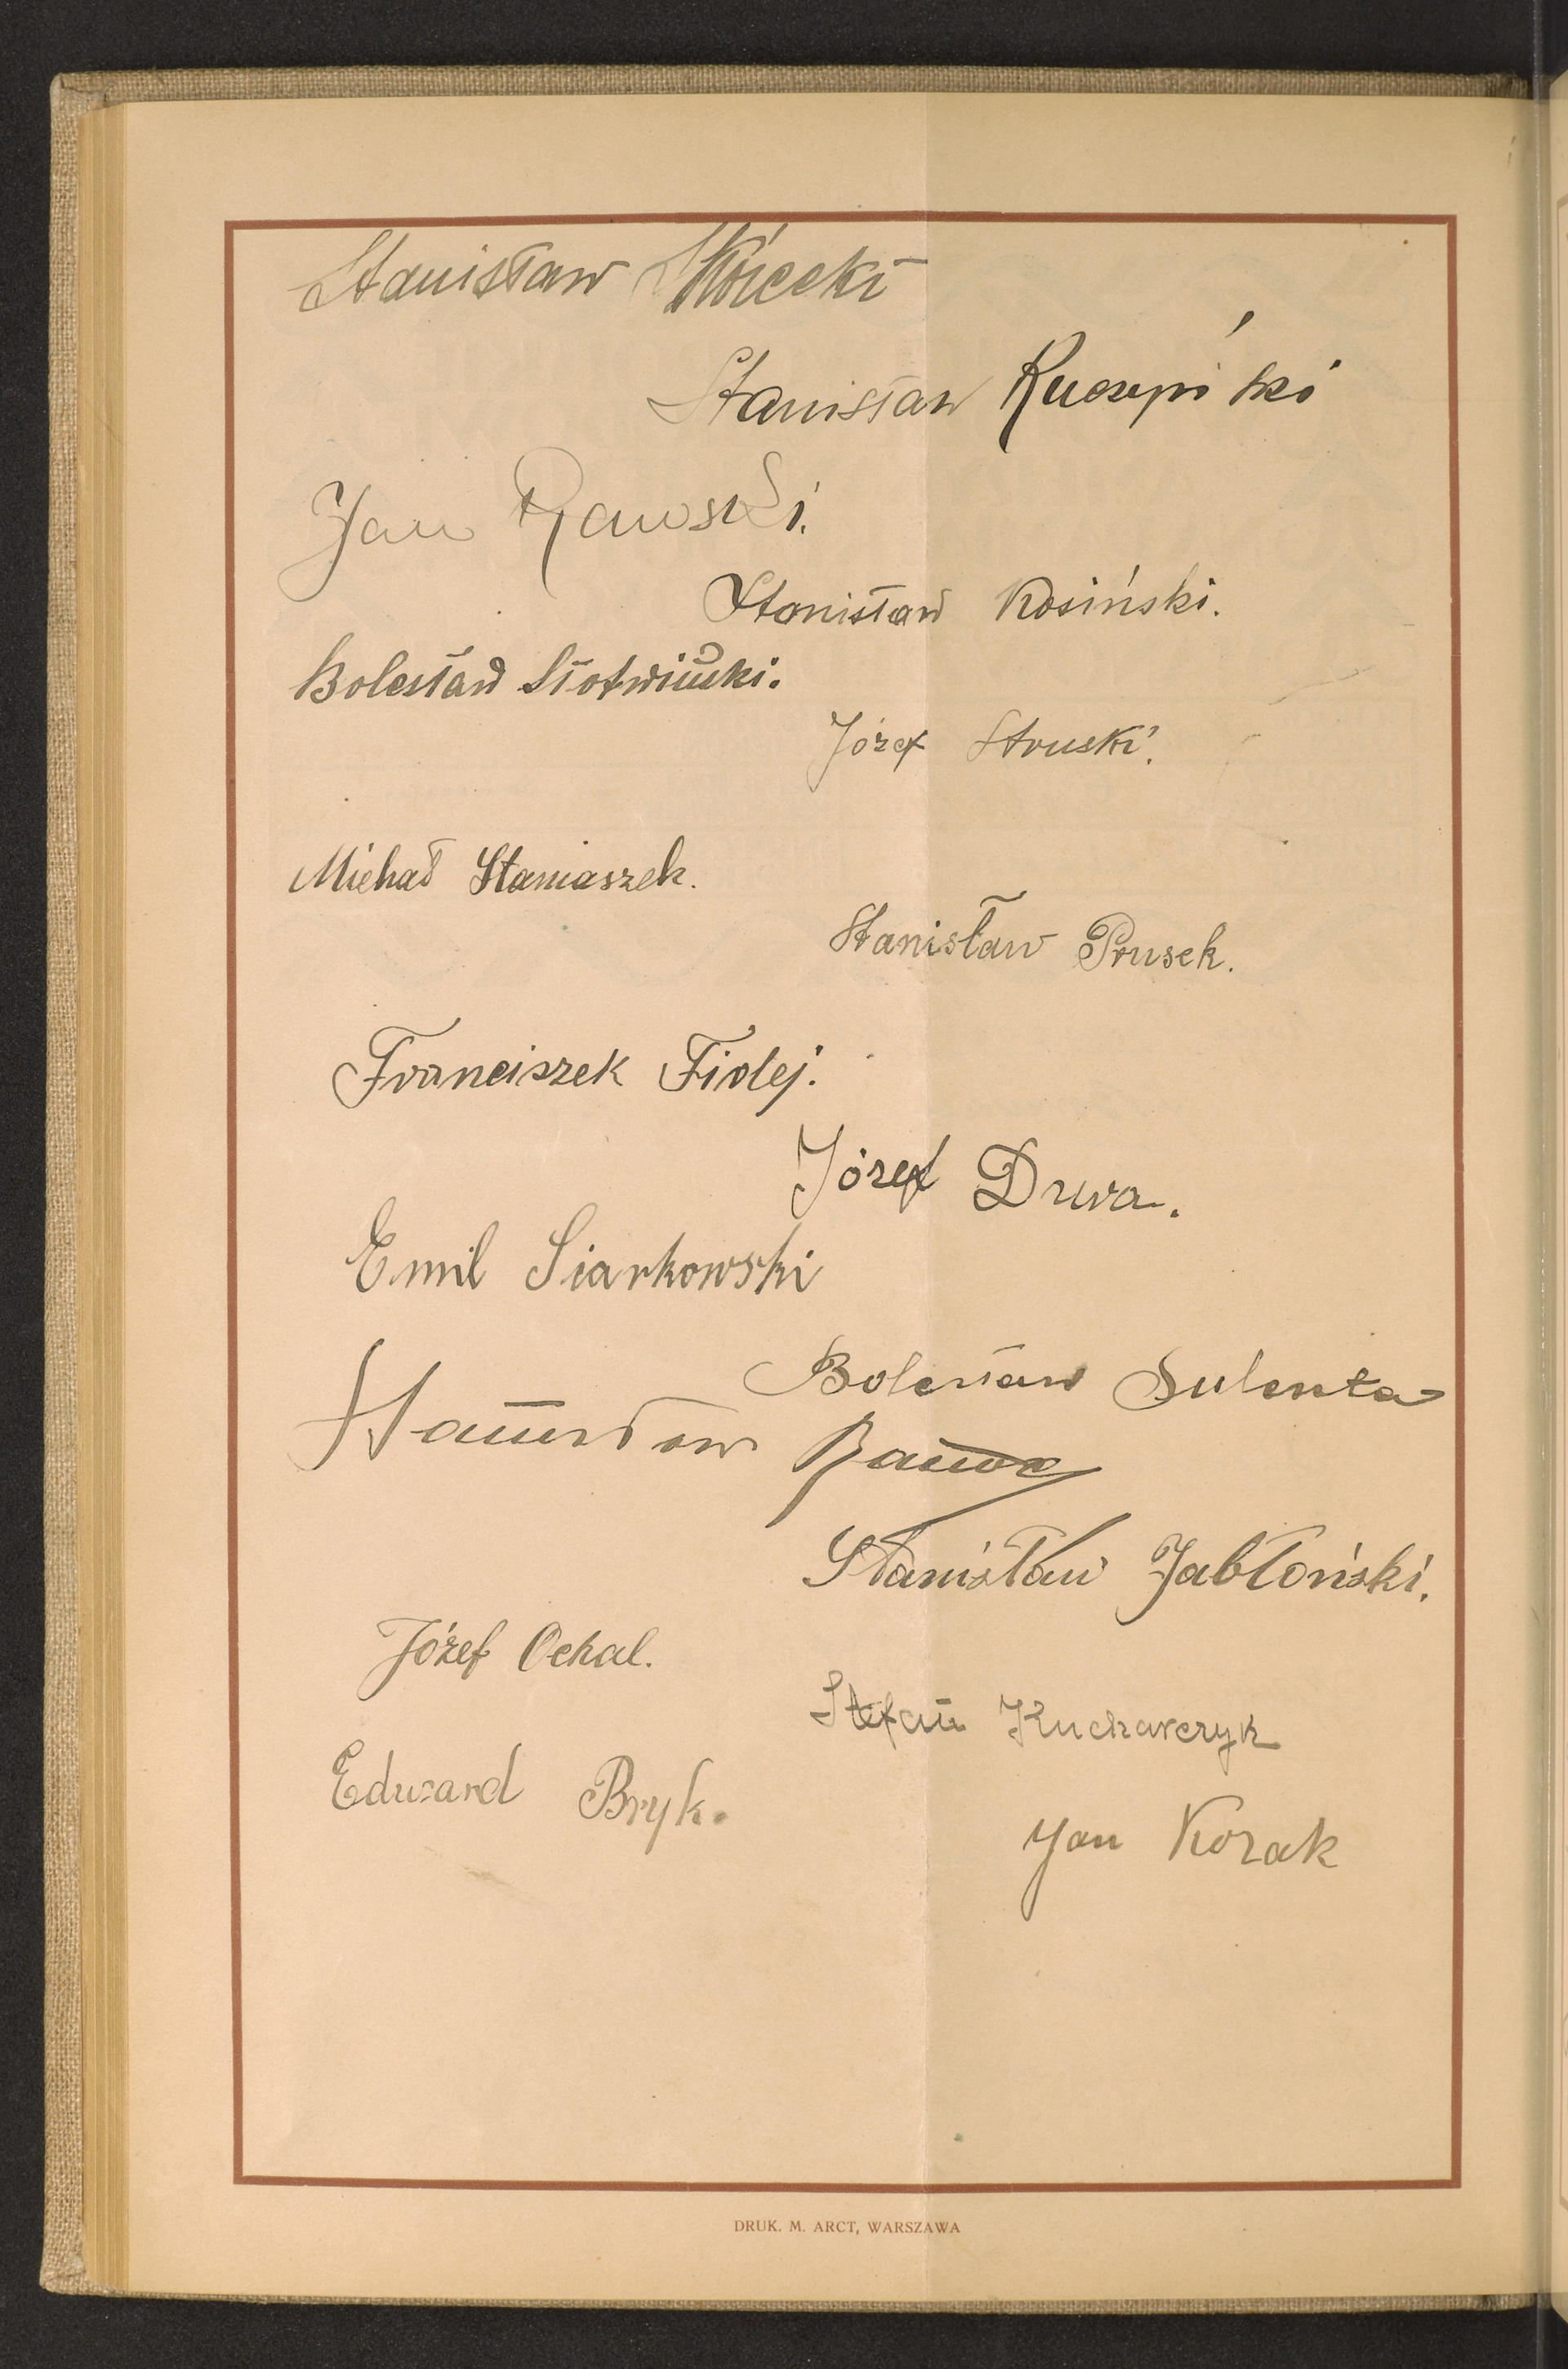 Stanisław Skórecki
Stanisław
Jan Rawski.
Stanisław Kosiński.
Bolesław Słotwiński.
Józef Struski.
Michał Staniaszek.
Stanisław Prusek.
Franciszek Fidej.
Józef Drwa.
Emil Siarkowski
Bolesław Sulenta
Stanisław
Stanisław Jabłoński.
Józef Ochal.
Stefan Kucharczyk
Edward Bryk.
Jan Kozak
DRUK. M. ARCT, WARSZAWA